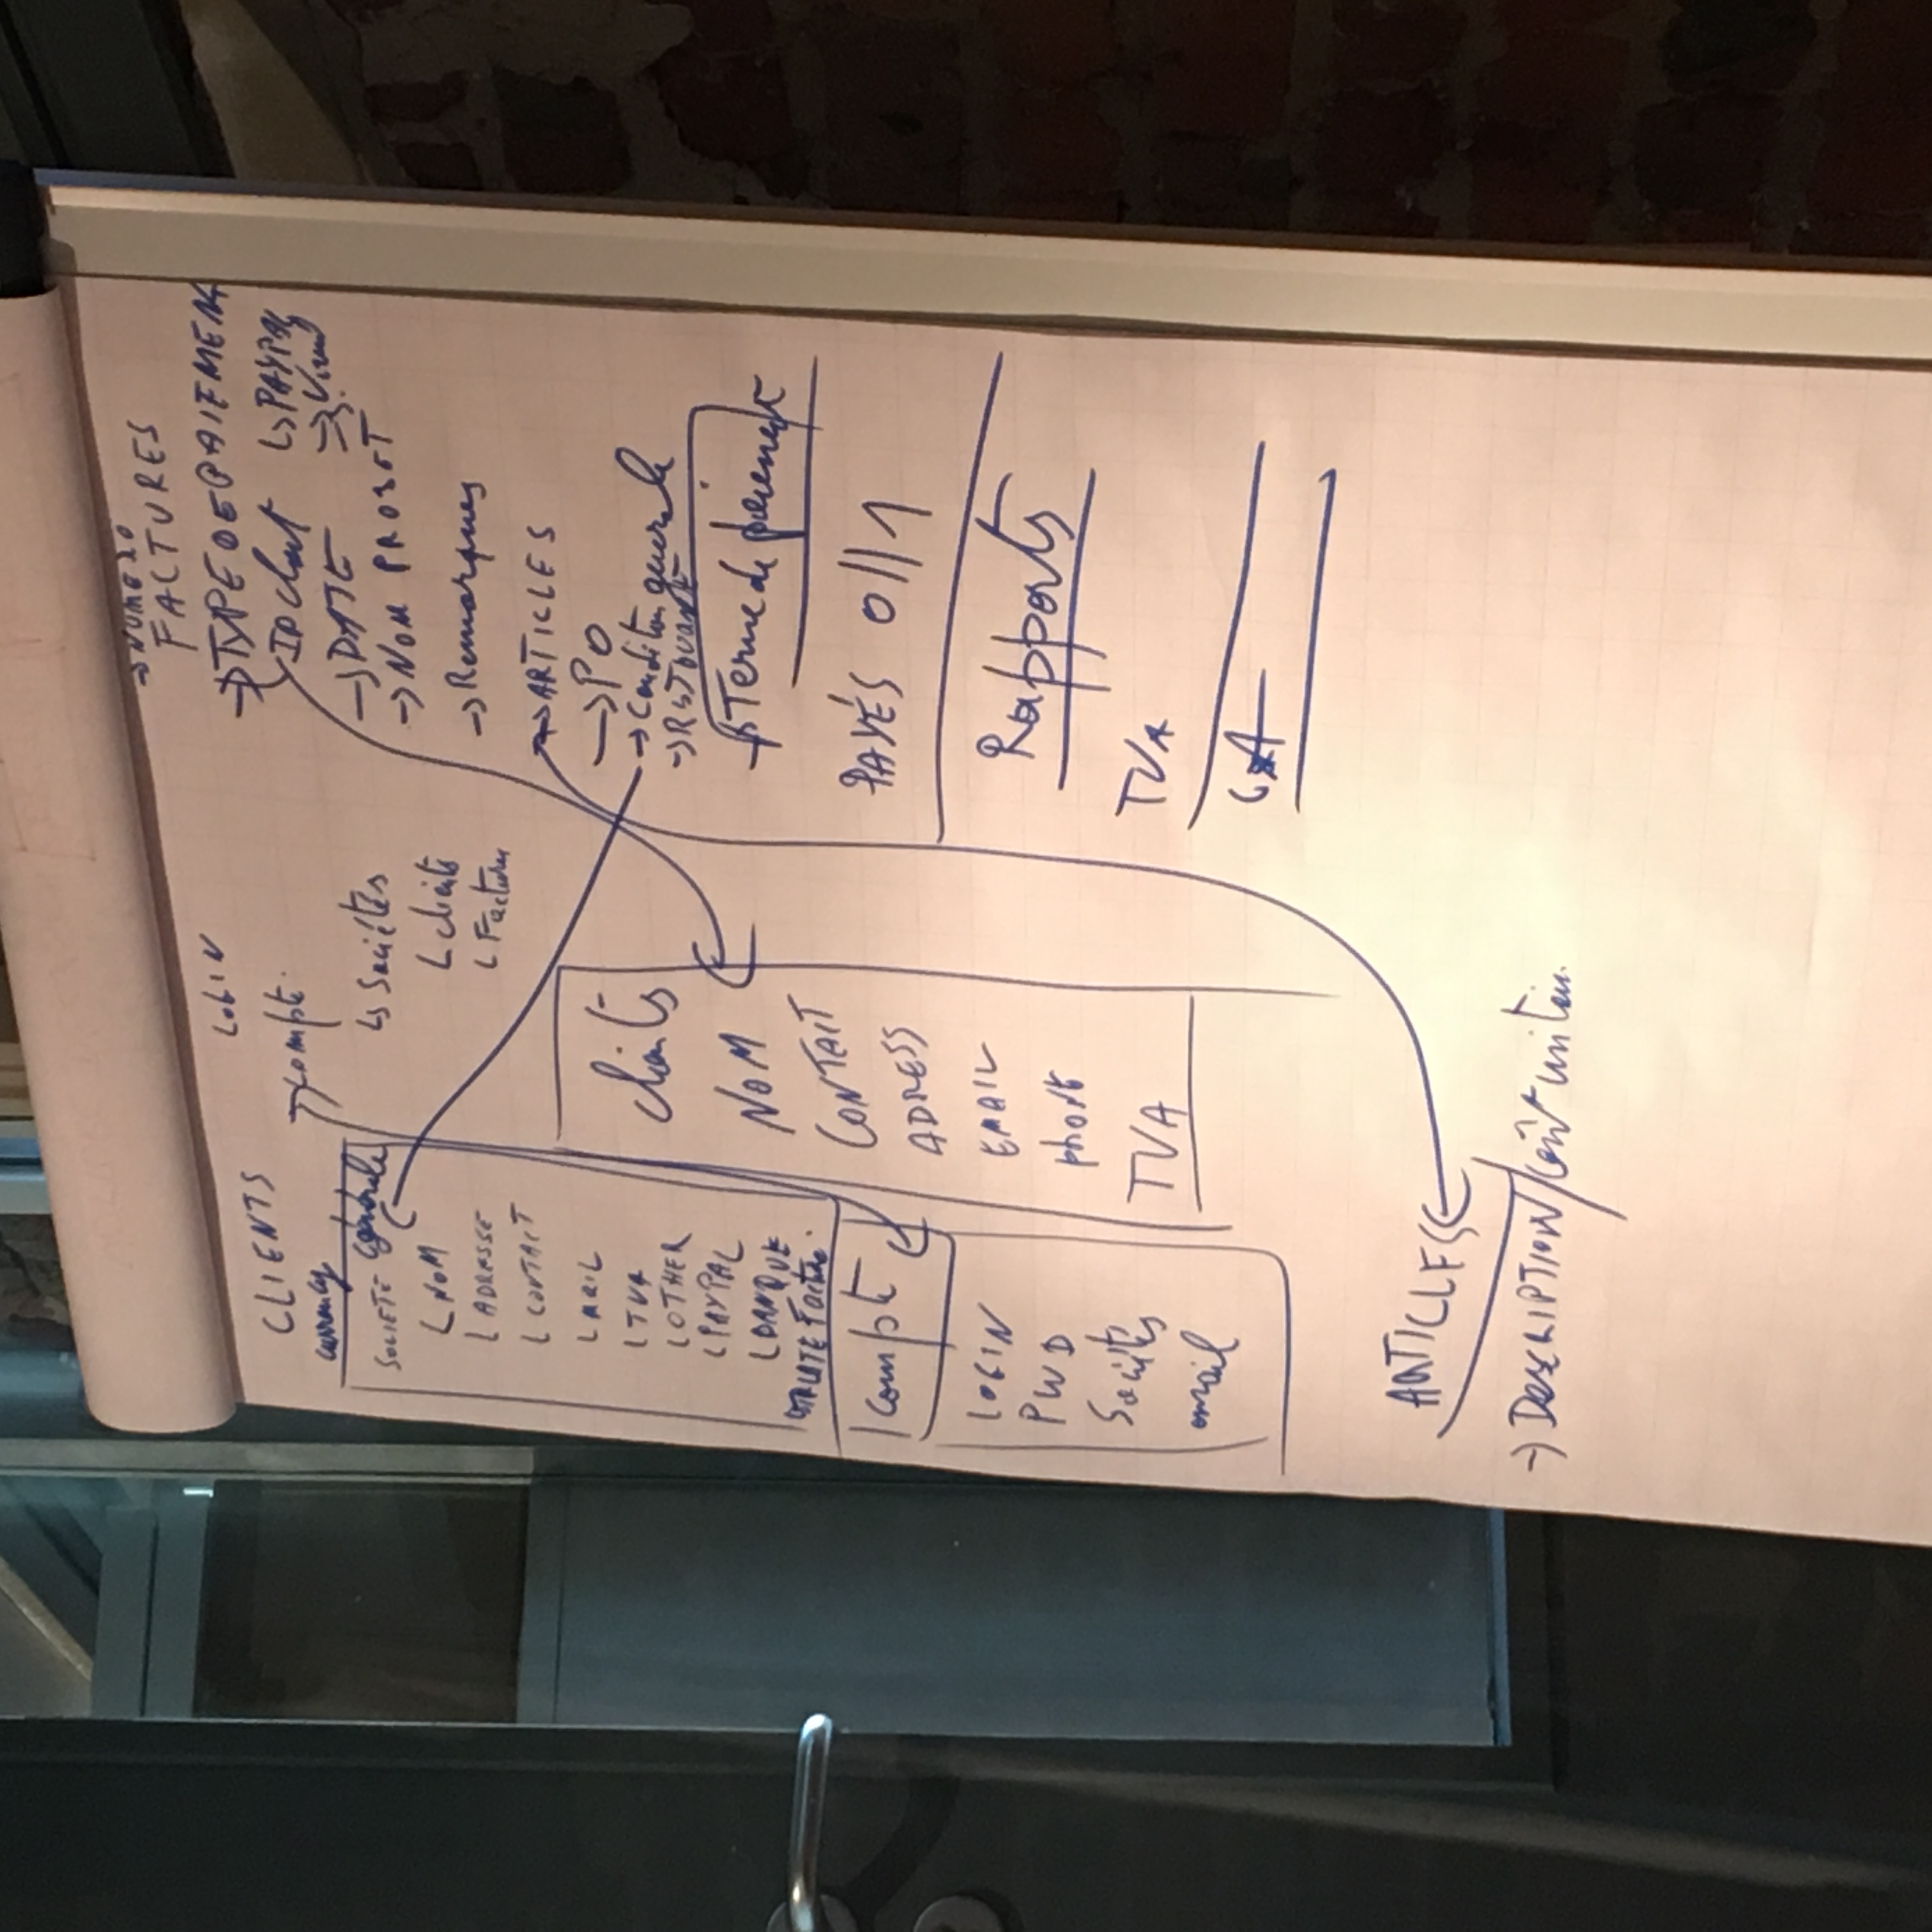 CLIENTS
currency
SOCIETE Générale
NOM
ADRESSE
CONTACT
MAIL
TVA
OTHER
PAYPAL
BANQUE
Facture
Compte
LOGIN
PWD
Sociétés
email
LOGIN
Compte
Sociétés
clients
Factures
clients
NOM
CONTACT
ADRESS
EMAIL
phone
TVA
→ NUMERO
FACTURES
→ TYPE DE PAIEMENT
ID client
↳ PAYPAL
→ DATE
→ NOM PROJET
→ Remarques
→ ARTICLES
→ PO
→ Condition generale
→ Terme de paiement
PAYÉS 0//1
Rapports
TVA
ARTICLES
→ DESCRIPTION / Coût unitaire